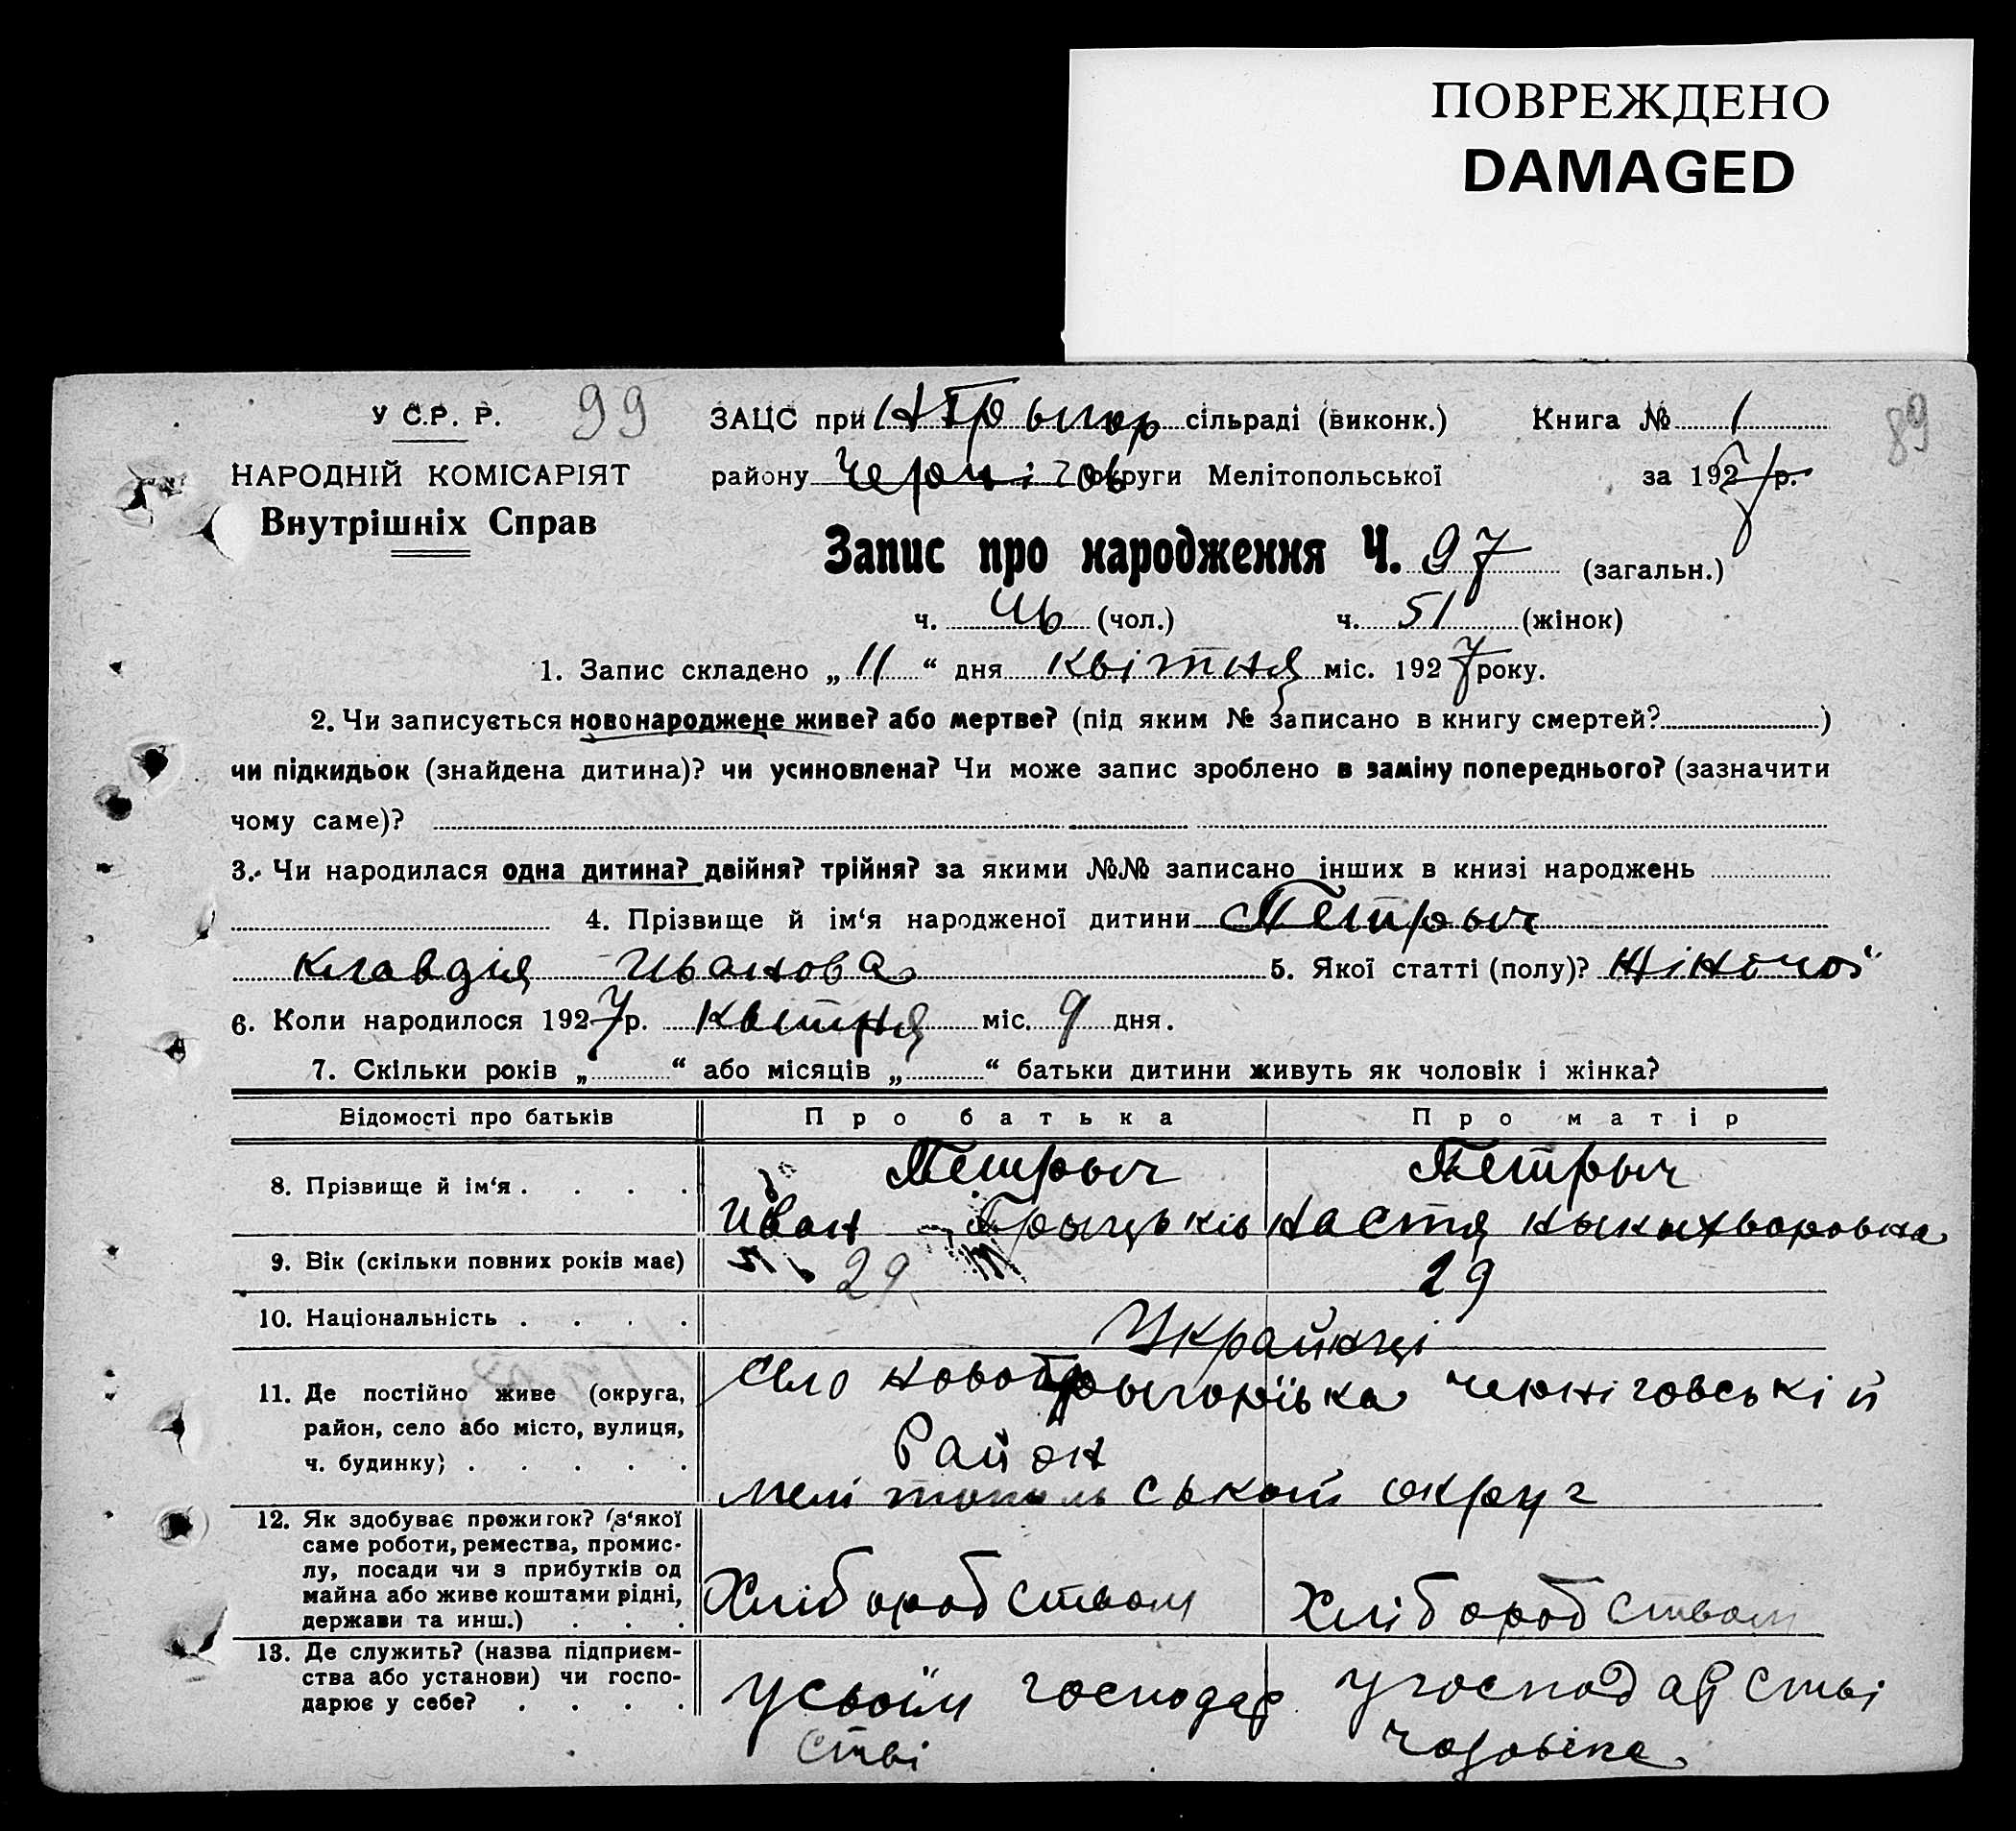 ПОВРЕЖДЕНО
DAMAGED
У С.Р. Р. 99 ЗАЦС при НГрыгор сільраді (виконк.) Книга № 1 89
НАРОДНІЙ КОМІСАРІЯТ району Чернігов округи Мелітопольської за 1927 р.
Внутрішніх Справ
Запис про народження Ч. 97 (загальн.)
ч. 46 (чол.) ч. 51 (жінок)
1. Запис складено „ 11 “ дня квітня міс. 1927 року.
2. Чи записується новонароджене живе? або мертве? (під яким № записано в книгу смертей? )
чи підкидьок (знайдена дитина)? чи усиновлена? Чи може запис зроблено в заміну попереднього? (зазначити
чому саме)?
3. Чи народилася одна дитина? двійня? трійня? за якими №№ записано інших в книзі народжень
4. Прізвище й ім‘я народженої дитини Петрыч
Клавдія Иванова 5. Якої статті (полу)? Жіночоі
6. Коли народилося 1927 р. Квытня міс. 9 дня.
7. Скільки років „ “ або місяців „ “ батьки дитини живуть як чоловік і жінка?
Відомості про батьків Про батька Про матір
8. Прізвище й ім‘я . . . . Петрыч Петрыч
Иван Грыцьків Настя Кыкыхворовна
9. Вік (скільки повних років має) 29 29
10. Національність . . . . Украйнці
11. Де постійно живе (округа, село Новогрыгорїька Черніговські й
район, село або місто, вулиця,
ч. будинку) . . . . . Район
Мелітопольськой округ
12. Як здобуває прожиток? (з‘якої
саме роботи, ремества, промис-
лу, посади чи з прибутків од
майна або живе коштами рідні,
держави та инш.) . . . Хліборобством Хліборобством
13. Де служить? (назва підприєм-
ства або установи) чи госпо-
дарює у себе? . . . . Усвоїм господар У господарстві
стві чоловіка